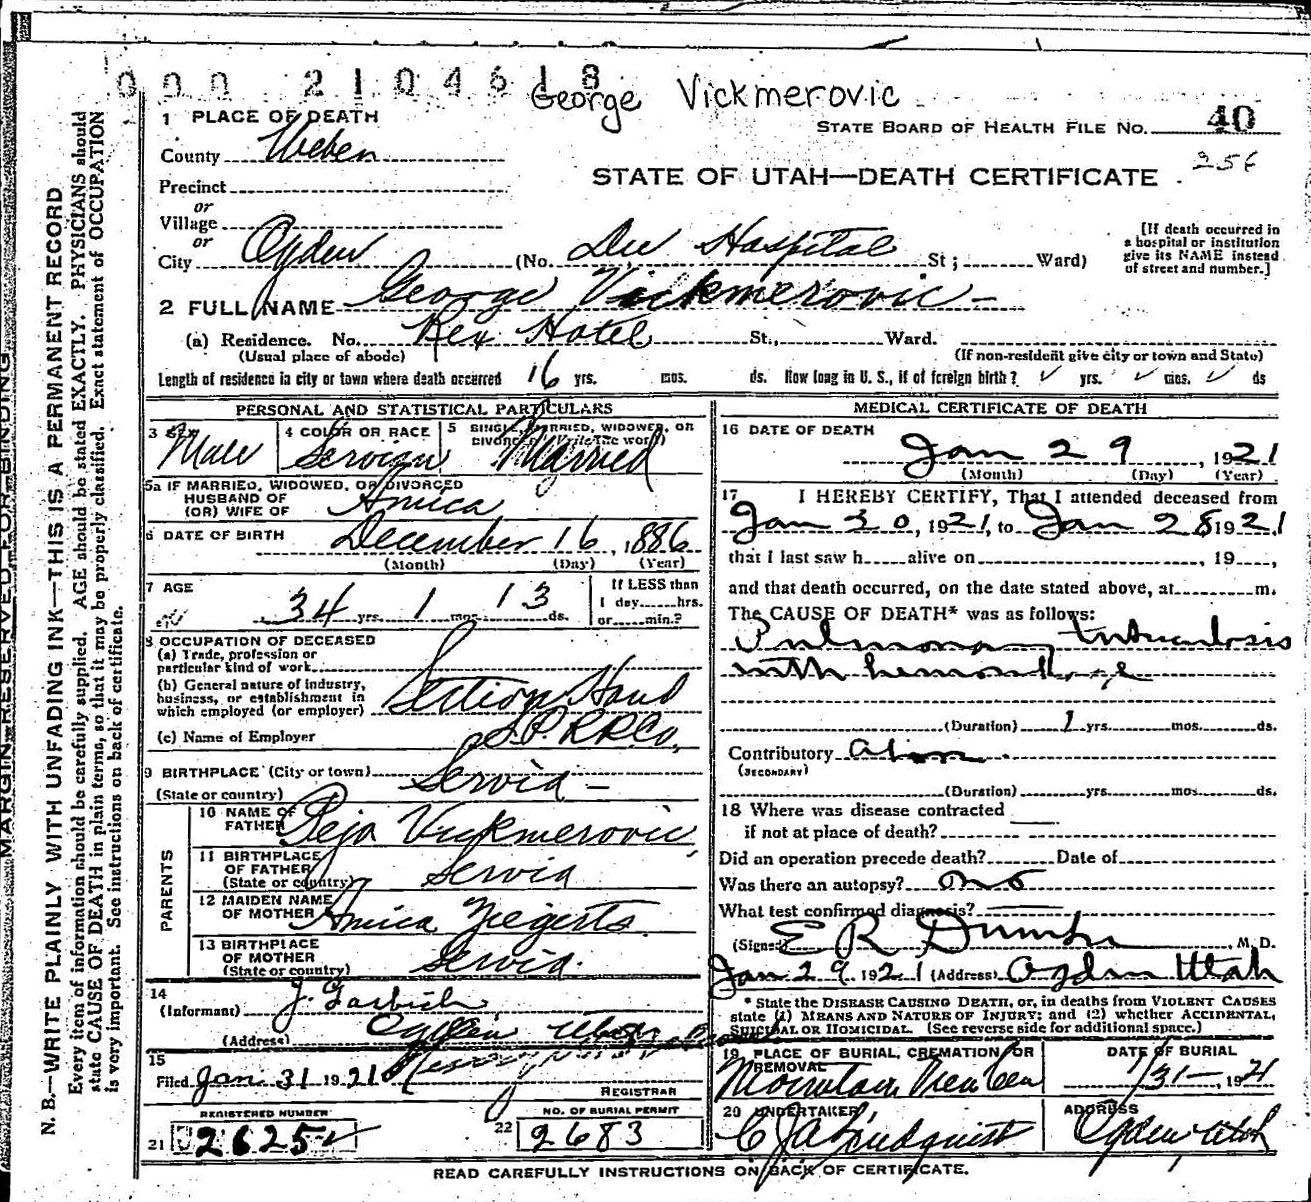 000 2104618
George Vickmerovic
STATE BOARD OF HEALTH FILE NO. 40
256
STATE OF UTAH—DEATH CERTIFICATE
1 PLACE OF DEATH
County Weber
Precinct
or
Village
or
City Ogden (No. Dee Hospital St; Ward)
[If death occurred in
a hospital or institution
give its NAME instead
of street and number.]
2 FULL NAME George Vickmerovic
(a) Residence. No. Rex Hotel St., Ward.
(Usual place of abode) (If non-resident give city or town and State)
Length of residence in city or town where death occurred 16 yrs. mos. ds. How long in U. S., if of foreign birth? yrs. mos. ds
PERSONAL AND STATISTICAL PARTICULARS
3 SEX Male
4 COLOR OR RACE Servian
5 SINGLE, MARRIED, WIDOWED, OR
DIVORCED (Write the word) Married
5a IF MARRIED, WIDOWED, OR DIVORCED
HUSBAND OF
(OR) WIFE OF Amica
6 DATE OF BIRTH December 16, 1886
(Month) (Day) (Year)
7 AGE 34 yrs. 1 mos. 13 ds.
If LESS than
1 day hrs.
or min.?
8 OCCUPATION OF DECEASED
(a) Trade, profession or
particular kind of work
(b) General nature of industry,
business, or establishment in
which employed (or employer) Section Hand
(c) Name of Employer S.P. R R Co,
9 BIRTHPLACE (City or town)
(State or country) Servia
PARENTS
10 NAME OF
FATHER Peja Vickmerovic,
11 BIRTHPLACE
OF FATHER
(State or country) Servia
12 MAIDEN NAME
OF MOTHER Amica
13 BIRTHPLACE
OF MOTHER
(State or country) Servia.
14
(Informant) J.
(Address) Ogden Utah
15
Filed Jan 31 1921
REGISTRAR
REGISTERED NUMBER
21 2625
NO. OF BURIAL PERMIT
22 2683
MEDICAL CERTIFICATE OF DEATH
16 DATE OF DEATH
Jan 29, 1921
(Month) (Day) (Year)
17 I HEREBY CERTIFY, That I attended deceased from
Jan 20, 1921, to Jan 28 1921
that I last saw h alive on , 19 ,
and that death occurred, on the date stated above, at m.
The CAUSE OF DEATH* was as follows:
Pulmonary tuberculosis
with hemorrhage
(Duration) 1 yrs. mos. ds.
Contributory
(SECONDARY)
(Duration) yrs. mos. ds.
18 Where was disease contracted
if not at place of death?
Did an operation precede death? Date of
Was there an autopsy? no
What test confirmed diagnosis?
(Signed) E R Dumke M. D.
Jan 29, 1921 (Address) Ogden Utah
* State the DISEASE CAUSING DEATH, or, in deaths from VIOLENT CAUSES
state (1) MEANS AND NATURE OF INJURY; and (2) whether ACCIDENTAL,
SUICIDAL OR HOMICIDAL. (See reverse side for additional space.)
19 PLACE OF BURIAL, CREMATION, OR
REMOVAL
Mountain View Cem
DATE OF BURIAL
1/31—, 1921
20 UNDERTAKER,
C J A Lindquist
ADDRESS
Ogden Utah
READ CAREFULLY INSTRUCTIONS ON BACK OF CERTIFICATE.
MARGIN RESERVED FOR BINDING
N. B.—WRITE PLAINLY WITH UNFADING INK—THIS IS A PERMANENT RECORD
Every item of information should be carefully supplied. AGE should be stated EXACTLY. PHYSICIANS should
state CAUSE OF DEATH in plain terms, so that it may be properly classified. Exact statement of OCCUPATION
is very important. See instructions on back of certificate.